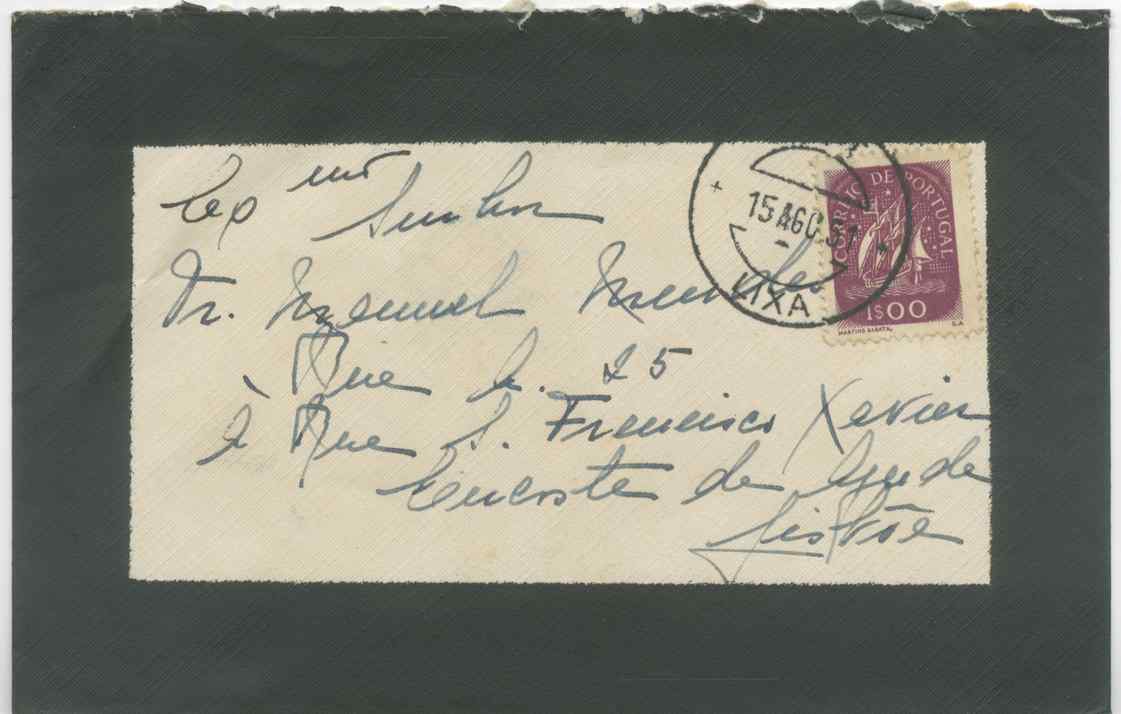 Exmo Senhor
Dr. Manuel Mendes
Rua L. 25
à Rua S. Francisco Xavier
Encosta da Ajuda
Lisbôa
15 AGO. 51
LIXA
CORREIO DE PORTUGAL
1$00
MARTINS BARATA,